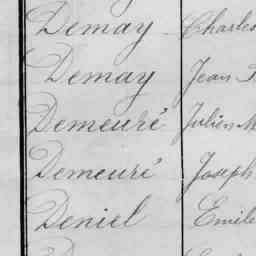 Demay Charles
Demay Jean
Demeuré Julien M
Demeuré Joseph
Deniel Emile